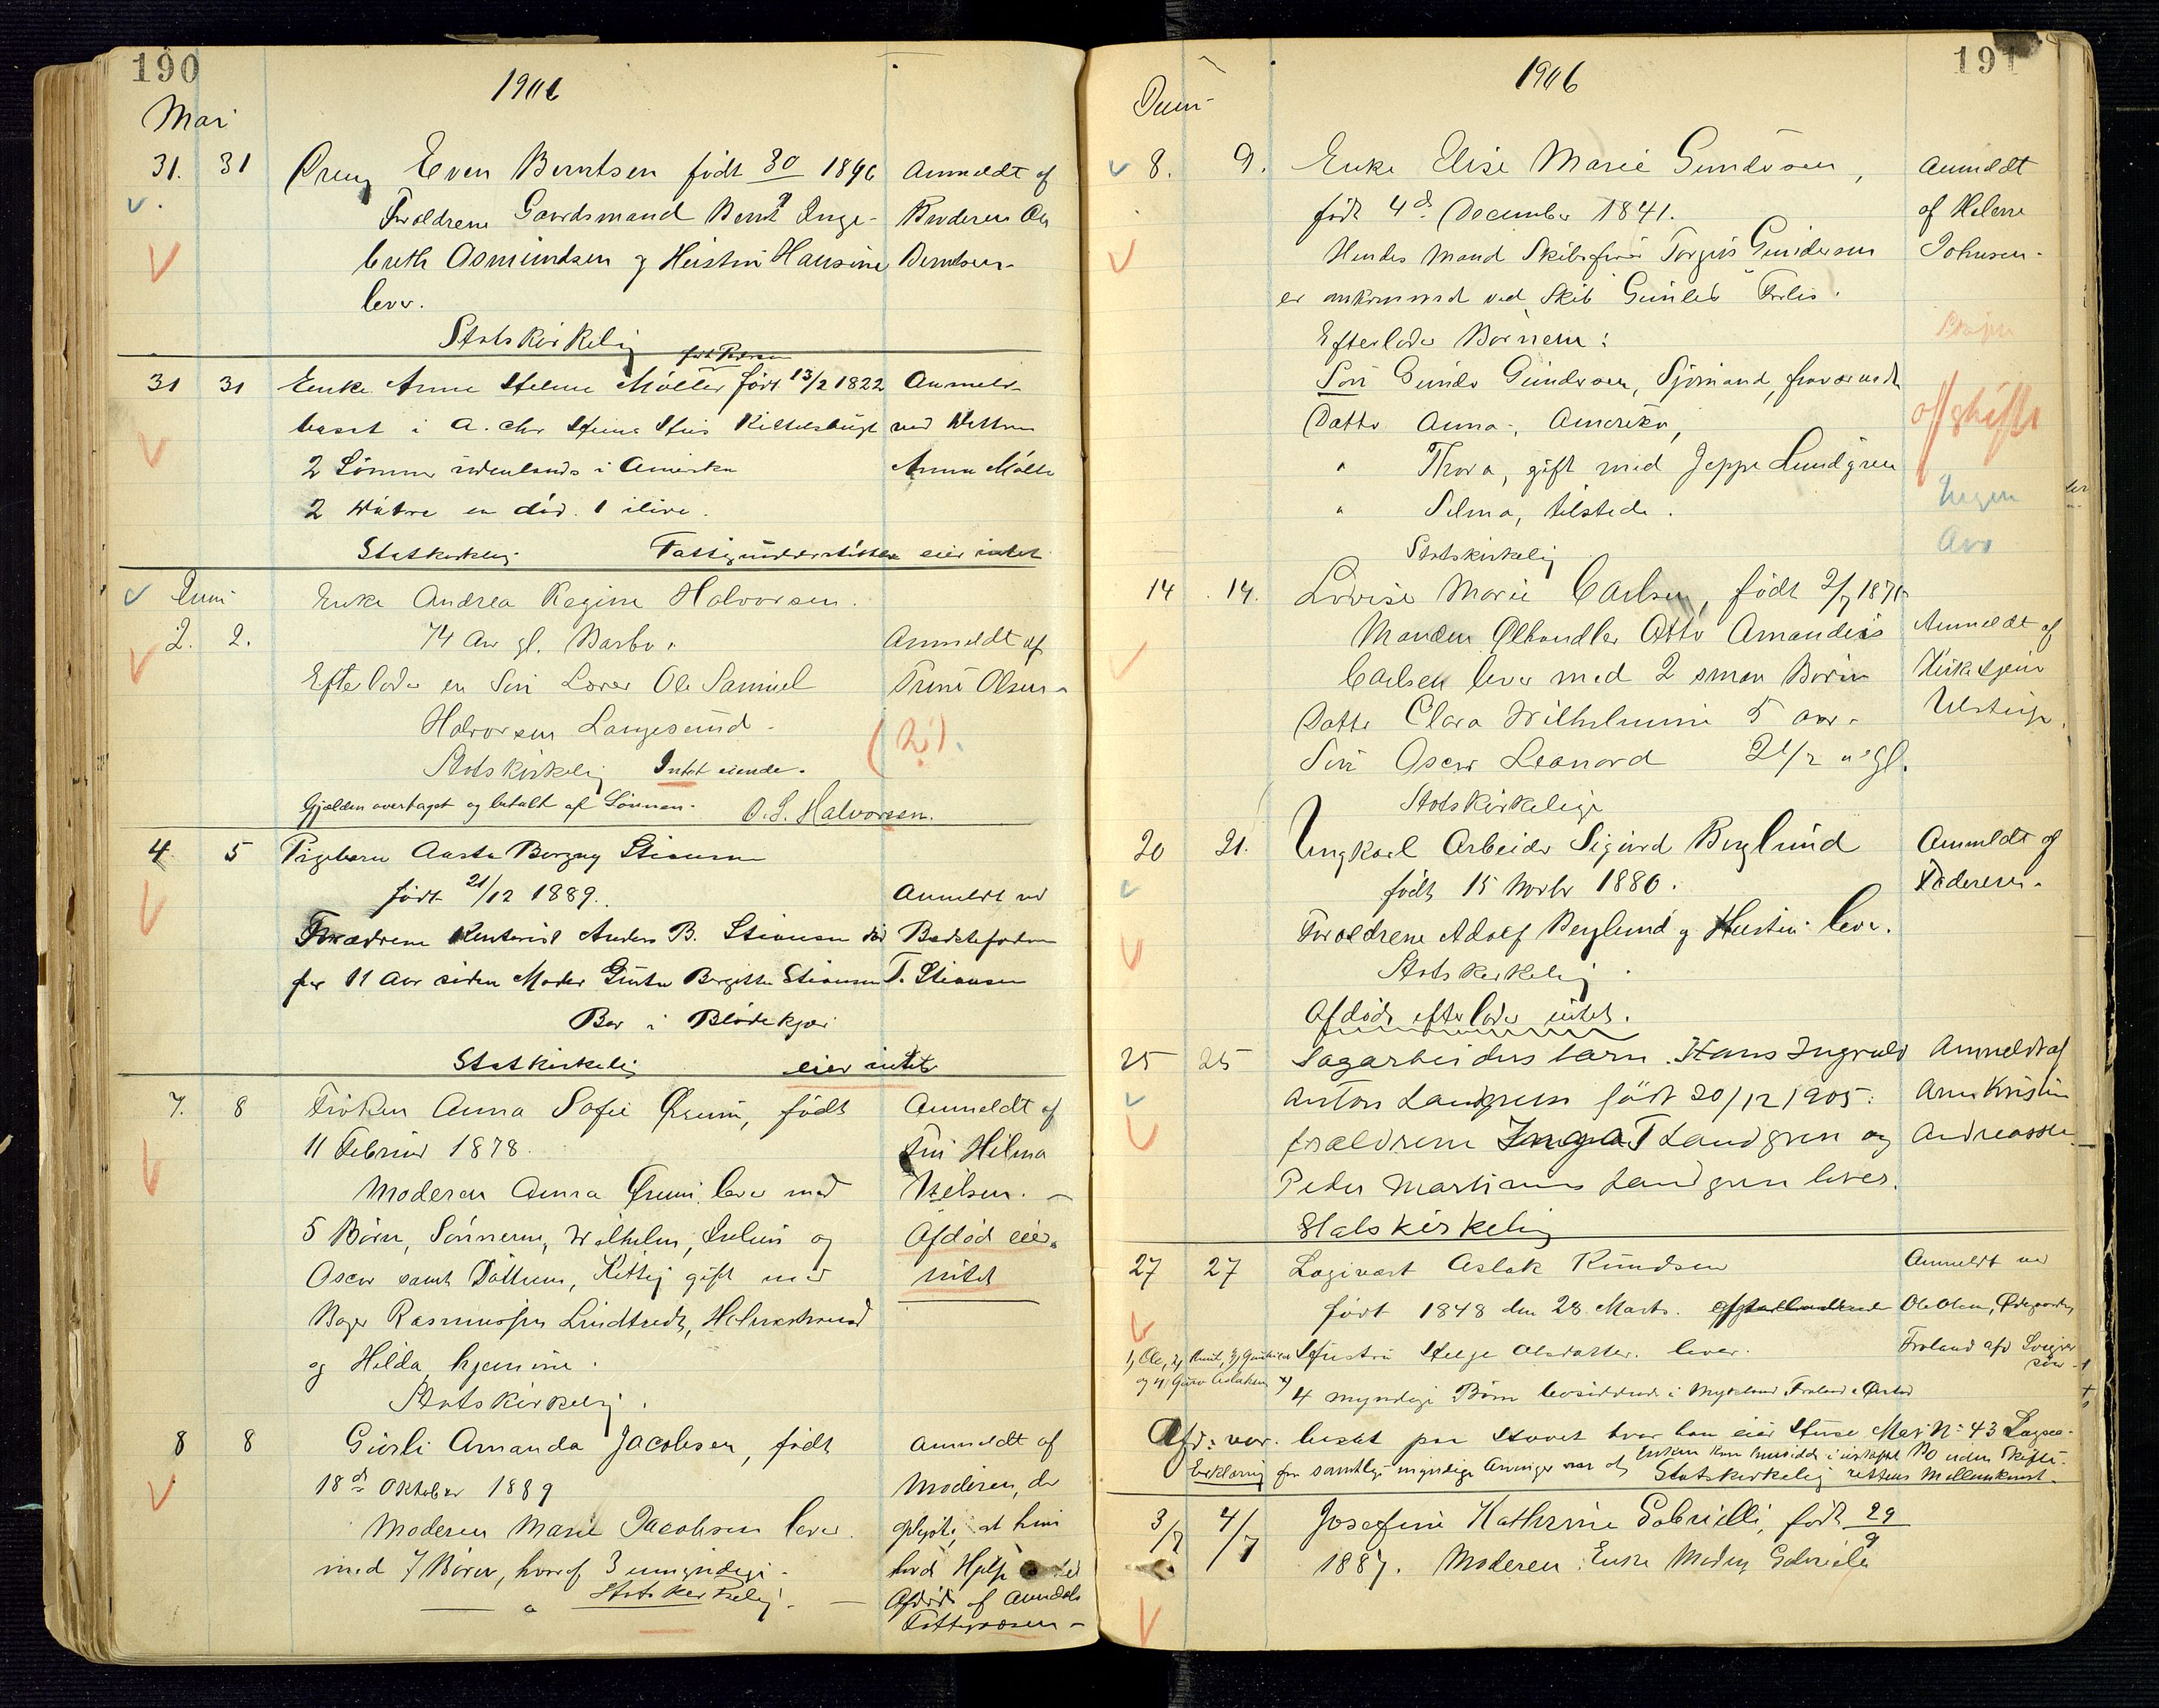 190
1906
Mai
31. 31 Dreng Even Berntsen født 30/9 1896 Anmeldt af
Forældrene Gaardsmand Bernt Inge- Broderen Ole
breth Osmundsen og Hustru Hansine Berntsen
lever.
Statskirkelig
født
31 31 Enke Anne Helene Møller født 13/2 1822 Anmeldt
boset i A. Chr Kittelsbugt ved Datteren
2 Sønner udenlands i Amerika Anna Møller
2 Døtre en død. 1 ilive.
Statskirkelig Fattigunderstøttet eier intet
Juni
2. 2. Enke Andrea Regine Halvorsen.
74 Aar gl. Barbo. Anmeldt af
Efterlader en Søn Lærer Ole Samuel Trine Olsen
Halvorsen Langesund.
(2).
Statskirkelig Intet eiende.
Gjælden overtaget og betalt af Sønnen. O. S. Halvorsen.
4. 5 Pigebarn Aasta Borgny Stiansen
født 21/12 1889. Anmeldt ved
Forældrene Anders B. Stiansen død Bedstefaderen
for 11 Aar siden Moder Birgitte Stiansen T. Stiansen
Bor i Blødekjær
Statskirkelig eier intet
7. 8 Frøken Anna Sofie Juni, født Anmeldt af
11 Februar 1878. Fru Hilma
Moderen Anna Juni lever med Nilsen.
5 Børn, Sønnerne, Wilhelm, Julius og Afdød eier
Oscar samt Døttrene, Kitty gift med intet
Bager Rasmussen Lindtvedt, Holmestrand
og Hilda hjemme.
Statskirkelig.
8 8 Gusli Amanda Jacobsen, født Anmeldt af
18de Oktober 1889 Moderen, der
Moderen Marie Jacobsen lever oplyste, at hun
med 7 Børn, hvoraf 3 umyndige. havde Hjelp
Statskirkelig. Afdøde af Arendals
Fattigvæsen
191
1906
Juni
8. 9. Enke Elise Marie Gundersen, Anmeldt
født 4de December 1841. af Helene
Hendes Mand Skibsfører Torgius Gundersen Johnsen.
er omkommet ved Skib Forlis.
Efterlader Børnene:
Søn Gunder Gundersen, Sjømand, fraværende
Datter Anna, Amerika,
offskifte
" Thora, gift med Jeppe Lundgren
Ingen
" Selma, tilstede.
Arv
Statskirkelig
14 14. Lovise Marie Carlsen, født 2/7 1871
Manden Ølhandler Otto Amandus Anmeldt af
Carlsen lever med 2 smaa Børn Kirketjener
Datter Clara Wilhelmine 5 aar. Ulstrup.
Søn Oscar Leonard 2 1/2 " gl.
Statskirkelige
20 21. Ungkarl Arbeider Sigurd Berglund Anmeldt af
født 15 Novbr 1880. Faderen.
Forældrene Adolf Berglund og Hustru lever.
Statskirkelig.
Afdøde efterlader intet.
25 25 Sagarbeiders barn. Hans Ingvald Anmeldt af
Anton Landgren født 20/12 1905. Ane Kristine
forældrene Inga T Landgren og Andreassen
Peder Martinius Landgren lever.
Statskirkelig
27 27 Logivært Aslak Knudsen Anmeldt ved
født 1848 den 28 Marts. Ole Olsen,
Hustru Helge Olsdatter. lever. Froland afd Sviger
søn
1, Ole, 2, Knut, 3, Gunhild
og 4, Guro Aslaksen x)
4 myndige Børn bosiddende i Mykland Froland Øiestad
Afd: var bosat paa Stovet hvor han eier Huse Mat No 43
Enken kan hensidde i uskiftet Bo uden Skifte-
Erklæring fra samtlige myndige Arvinger Statskirkelig rettens Mellemkomst
3/7 4/7 Josefine Kathrine Gabrielli, født 29/9
1887. Moderen Enke Gabrielli